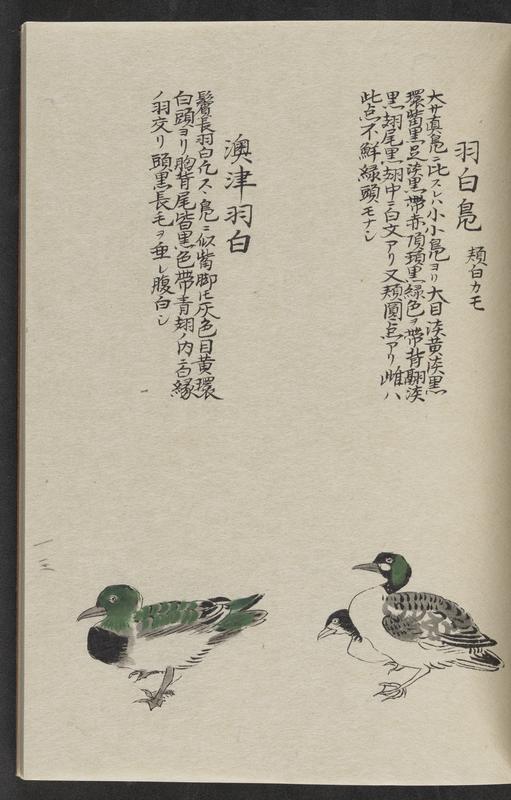 羽白鳬 頬白カモ
大サ真鳬ニ比スレハ小小鳬ヨリ大目淡黄淡黒
環觜黒足淡黒帯赤頂頚黒緑色ヲ帯背翮淡
黒翅尾黒翅中ニ白文アリ又頬圓点アリ雌ハ
此点不鮮緑頭モナシ
澳津羽白
鬢長羽白ニ似觜脚灰色目黄環
白頭ヨリ胸背尾皆黒色帯青翅ノ内白縁
ノ羽交リ頭黒長毛ヲ垂レ腹白シ